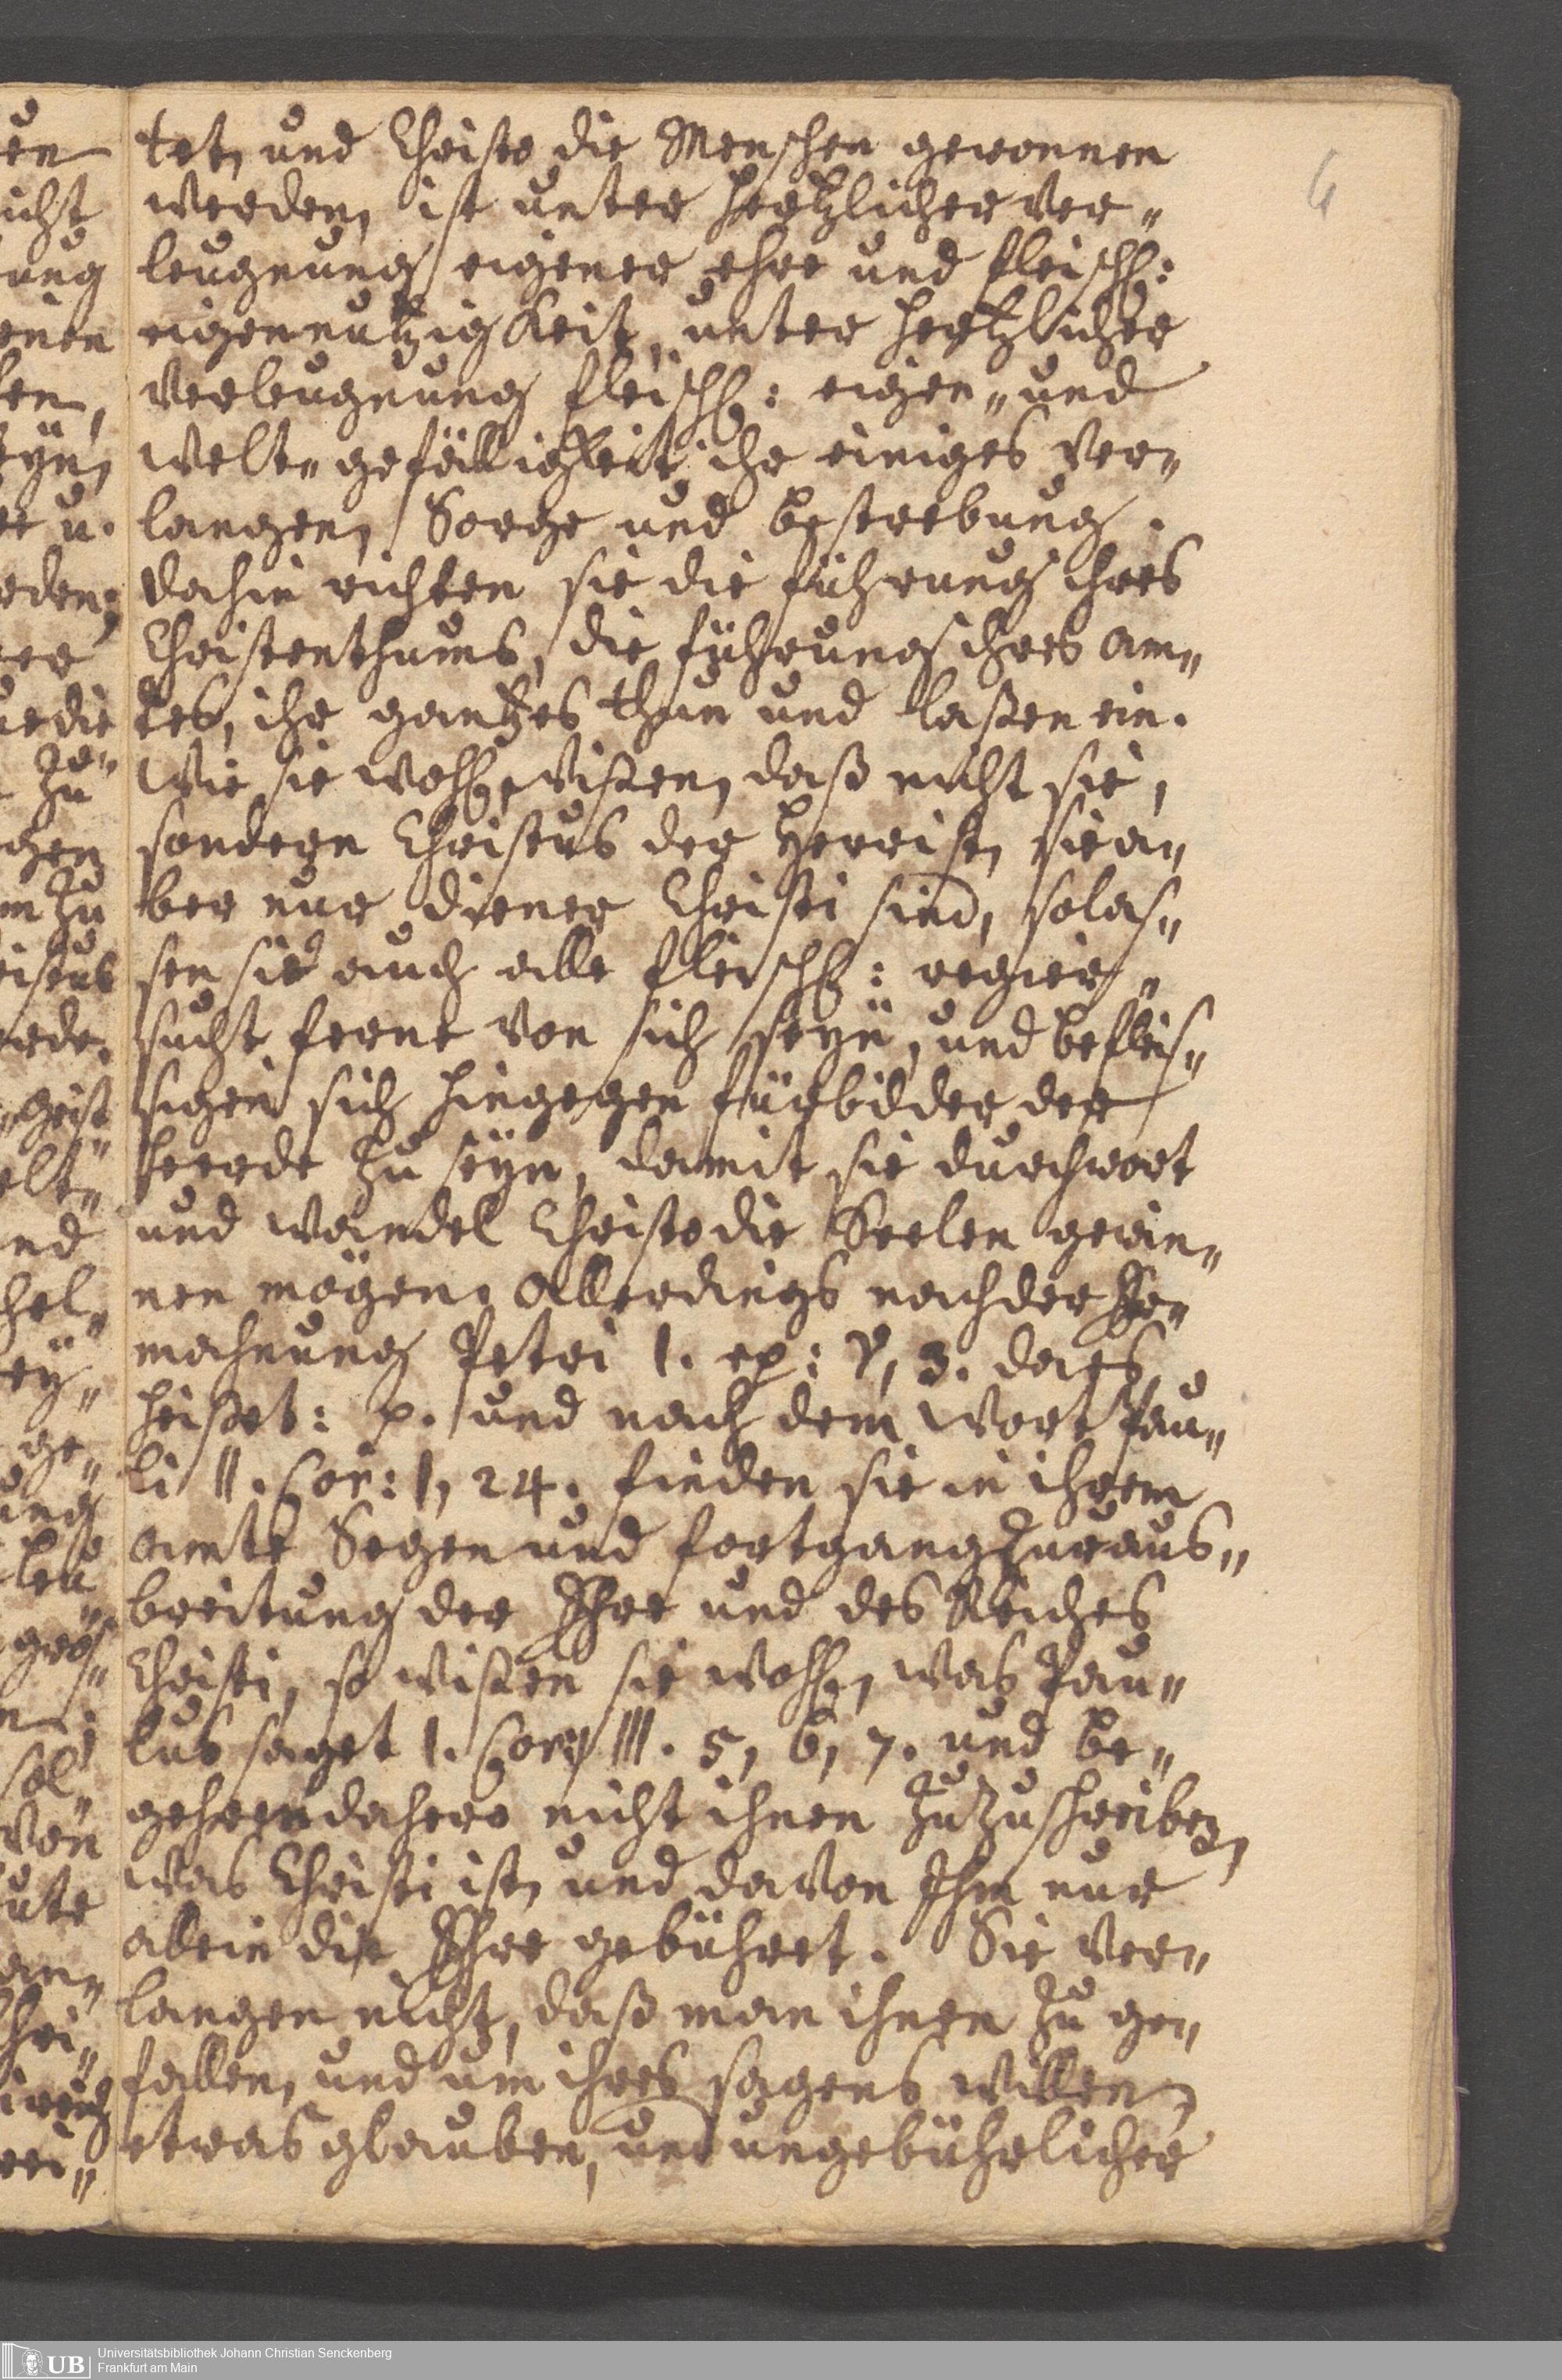 6
tet, und Christo die Menschen gewonnen
werden, ist unter hertzlicher Ver-
leugnung eigener ehre und fleischl:
eigennutzigkeit, unter hertzlicher
Verleugnung fleischl: eigen- und
Welt-gefälligkeit, ihr einiges Ver-
langen, Sorge und bestrebung.
dahin richten sie die führung ihres
Christenthums, die führung ihres am-
tes, ihr gantzes thun und laßen ein.
Wie sie wohl wißen, daß nicht sie,
sondern Christus der Herr ist, sie a-
ber nur diener Christi sind, so las-
sen sie auch alle fleischl: regier-
sucht ferne von sich seyn, und befleis-
sigen sich hingegen fürbilder der
heerde zu seyn, damit sie durch wort
und wandel Christo die Seelen gewin-
nen mögen. Allerdings nach der Er-
mahnung Petri 1. ep: V, 3. da es
heißet: p. und nach dem Wort Pau-
li II. Cor: 1, 24. finden sie in ihrem
amte Segen und fortgang zur aus-
breitung der Ehre und des Reiches
Christi, so wißen sie wohl, was Pau-
lus saget 1. Cor: III. 5, 6, 7. und be-
gehren dahero nicht ihnen zuzuschreiben,
was Christi ist, und davon Ihm nur
allein die Ehre gebühret. Sie ver-
langen nicht, daß man ihnen zu ge-
fallen, und um ihres sagens willen
etwas glauben, und ungebührlicher
UB Universitätsbibliothek Johann Christian Senckenberg
Frankfurt am Main